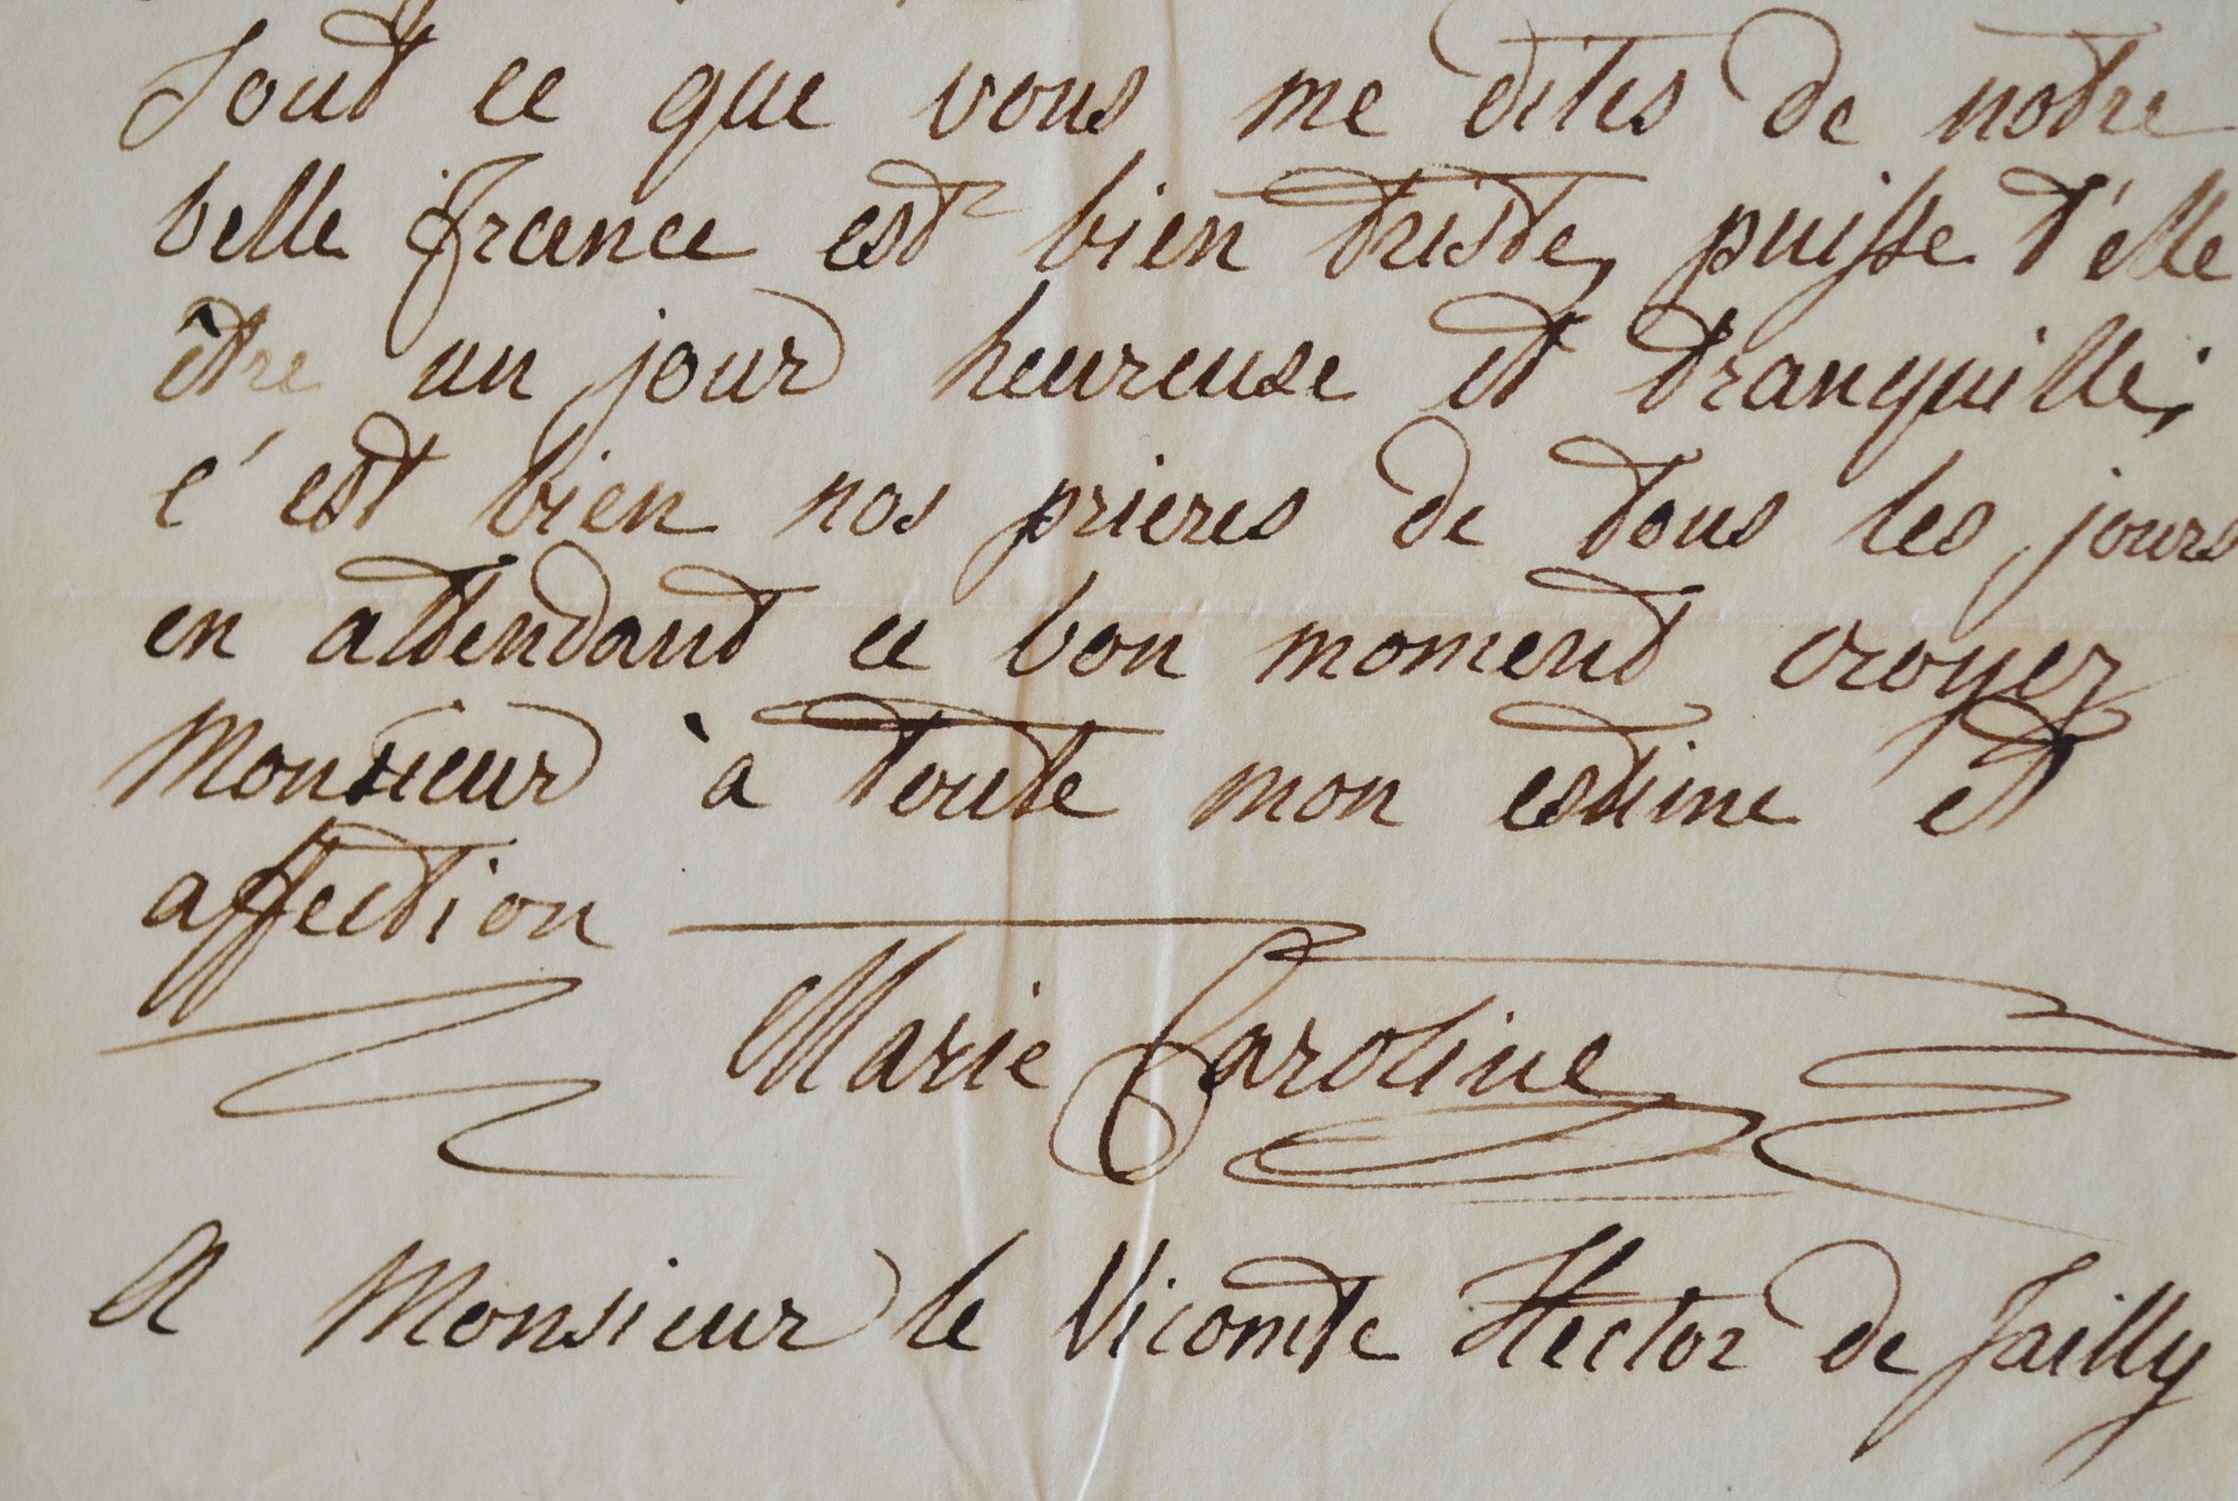 Tout ce que vous me dites de notre
belle France est bien triste, puisse t'elle
être un jour heureuse et tranquille;
c'est bien nos prieres de tous les jours
en attendant ce bon moment croyez
Monsieur à toute mon estime et
affection
Marie Caroline
A Monsieur le Vicomte Hector de Jailly